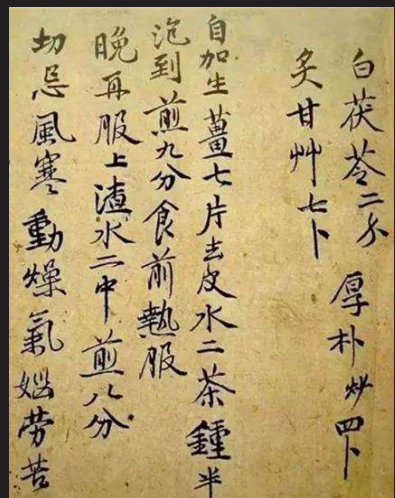 白茯苓二分 厚朴炒四卜
炙甘艸七卜
自加生薑七片去皮水二茶鍾半
泡到煎九分食前熱服
晚再服上渣水二中煎八分
切忌風寒動燥氣劳苦